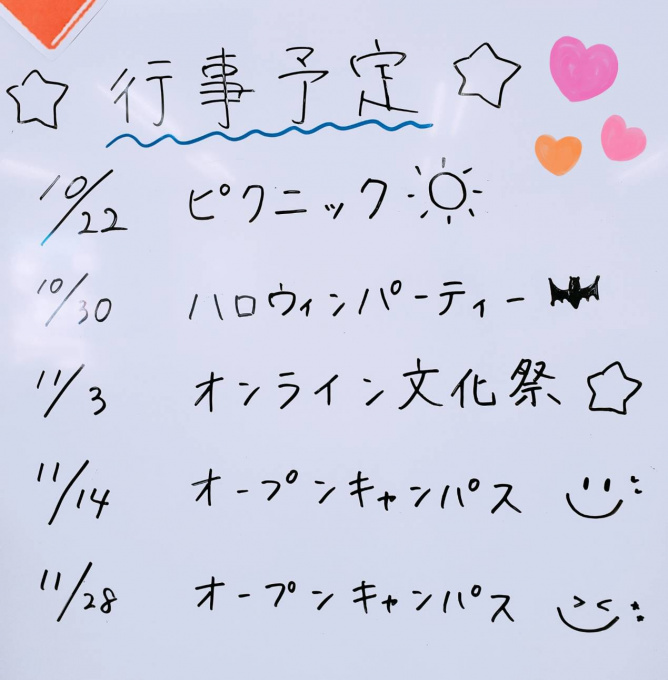 行事予定
10/22 ピクニック
10/30 ハロウィンパーティー
11/3 オンライン文化祭
11/14 オープンキャンパス
11/28 オープンキャンパス